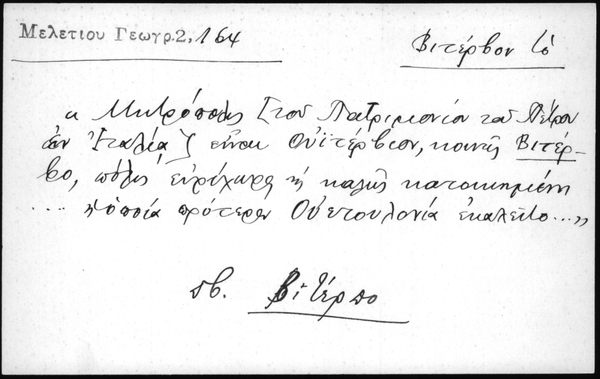 Μελετίου Γεωγρ. 2, 164
Βιτέρβον τό
« Μητρόπολις [του Πατριμονίου του Πέτρου
ἐν Ἰταλίᾳ] εἶναι Οὐϊτέρβιον, κοινῶς Βιτέρ-
βο, πόλις εὐρύχωρος καὶ καλῶς κατοικημένη
... ἡ ὁποία πρότερον Οὐετουλονία ἐκαλεῖτο...»
πβ. Βιτέρπο